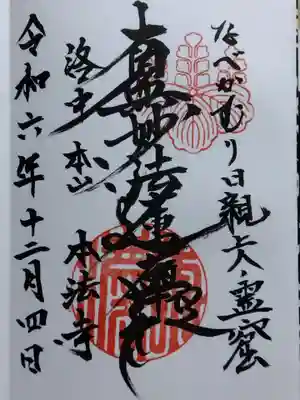 なべかむり日親大上人霊窟
南無妙法蓮華経
洛中 本山 本法寺
令和六年十二月四日